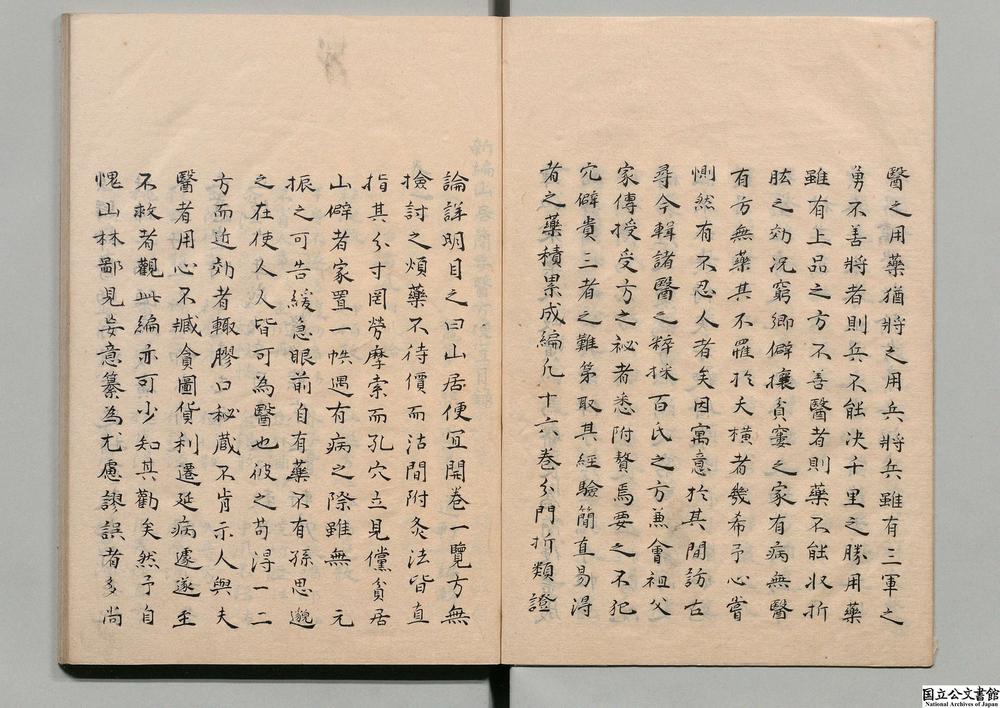 醫之用藥猶將之用兵將兵雖有三軍之
勇不善將者則兵不能决千里之勝用藥
雖有上品之方不善醫者則藥不能收折
肱之効況窮鄉僻壤貧窶之家有病無醫
有方無藥其不罹於夫橫者幾希予心嘗
惻然有不忍人者矣因寓意於其間訪古
尋今輯諸醫之粹採百氏之方兼會祖父
家傳授受方之祕者悉附贅焉要之不犯
宂僻貴三者之難第取其經驗簡直易淂
者之藥積累成編凢十六卷分門折類證
論詳明目之曰山居便宜開卷一覽方無
撿討之煩藥不待價而沽間附灸法皆直
指其分寸罔勞摩索而孔穴立見儻貧居
山僻者家置一帙遇有病之際雖無 元
振之可告緩急眼前自有藥不有孫思邈
之在使人人皆可為醫也彼之苟得一二
方而近効者輙膠口秘蔵不肯示人與夫
醫者用心不臧貪圖貨利遷延病遽遂至
不救者觀此編亦可少知其勸矣然予自
愧山林鄙見妄意纂為尤慮謬誤者多尚
国立公文書館
National Archives of Japan